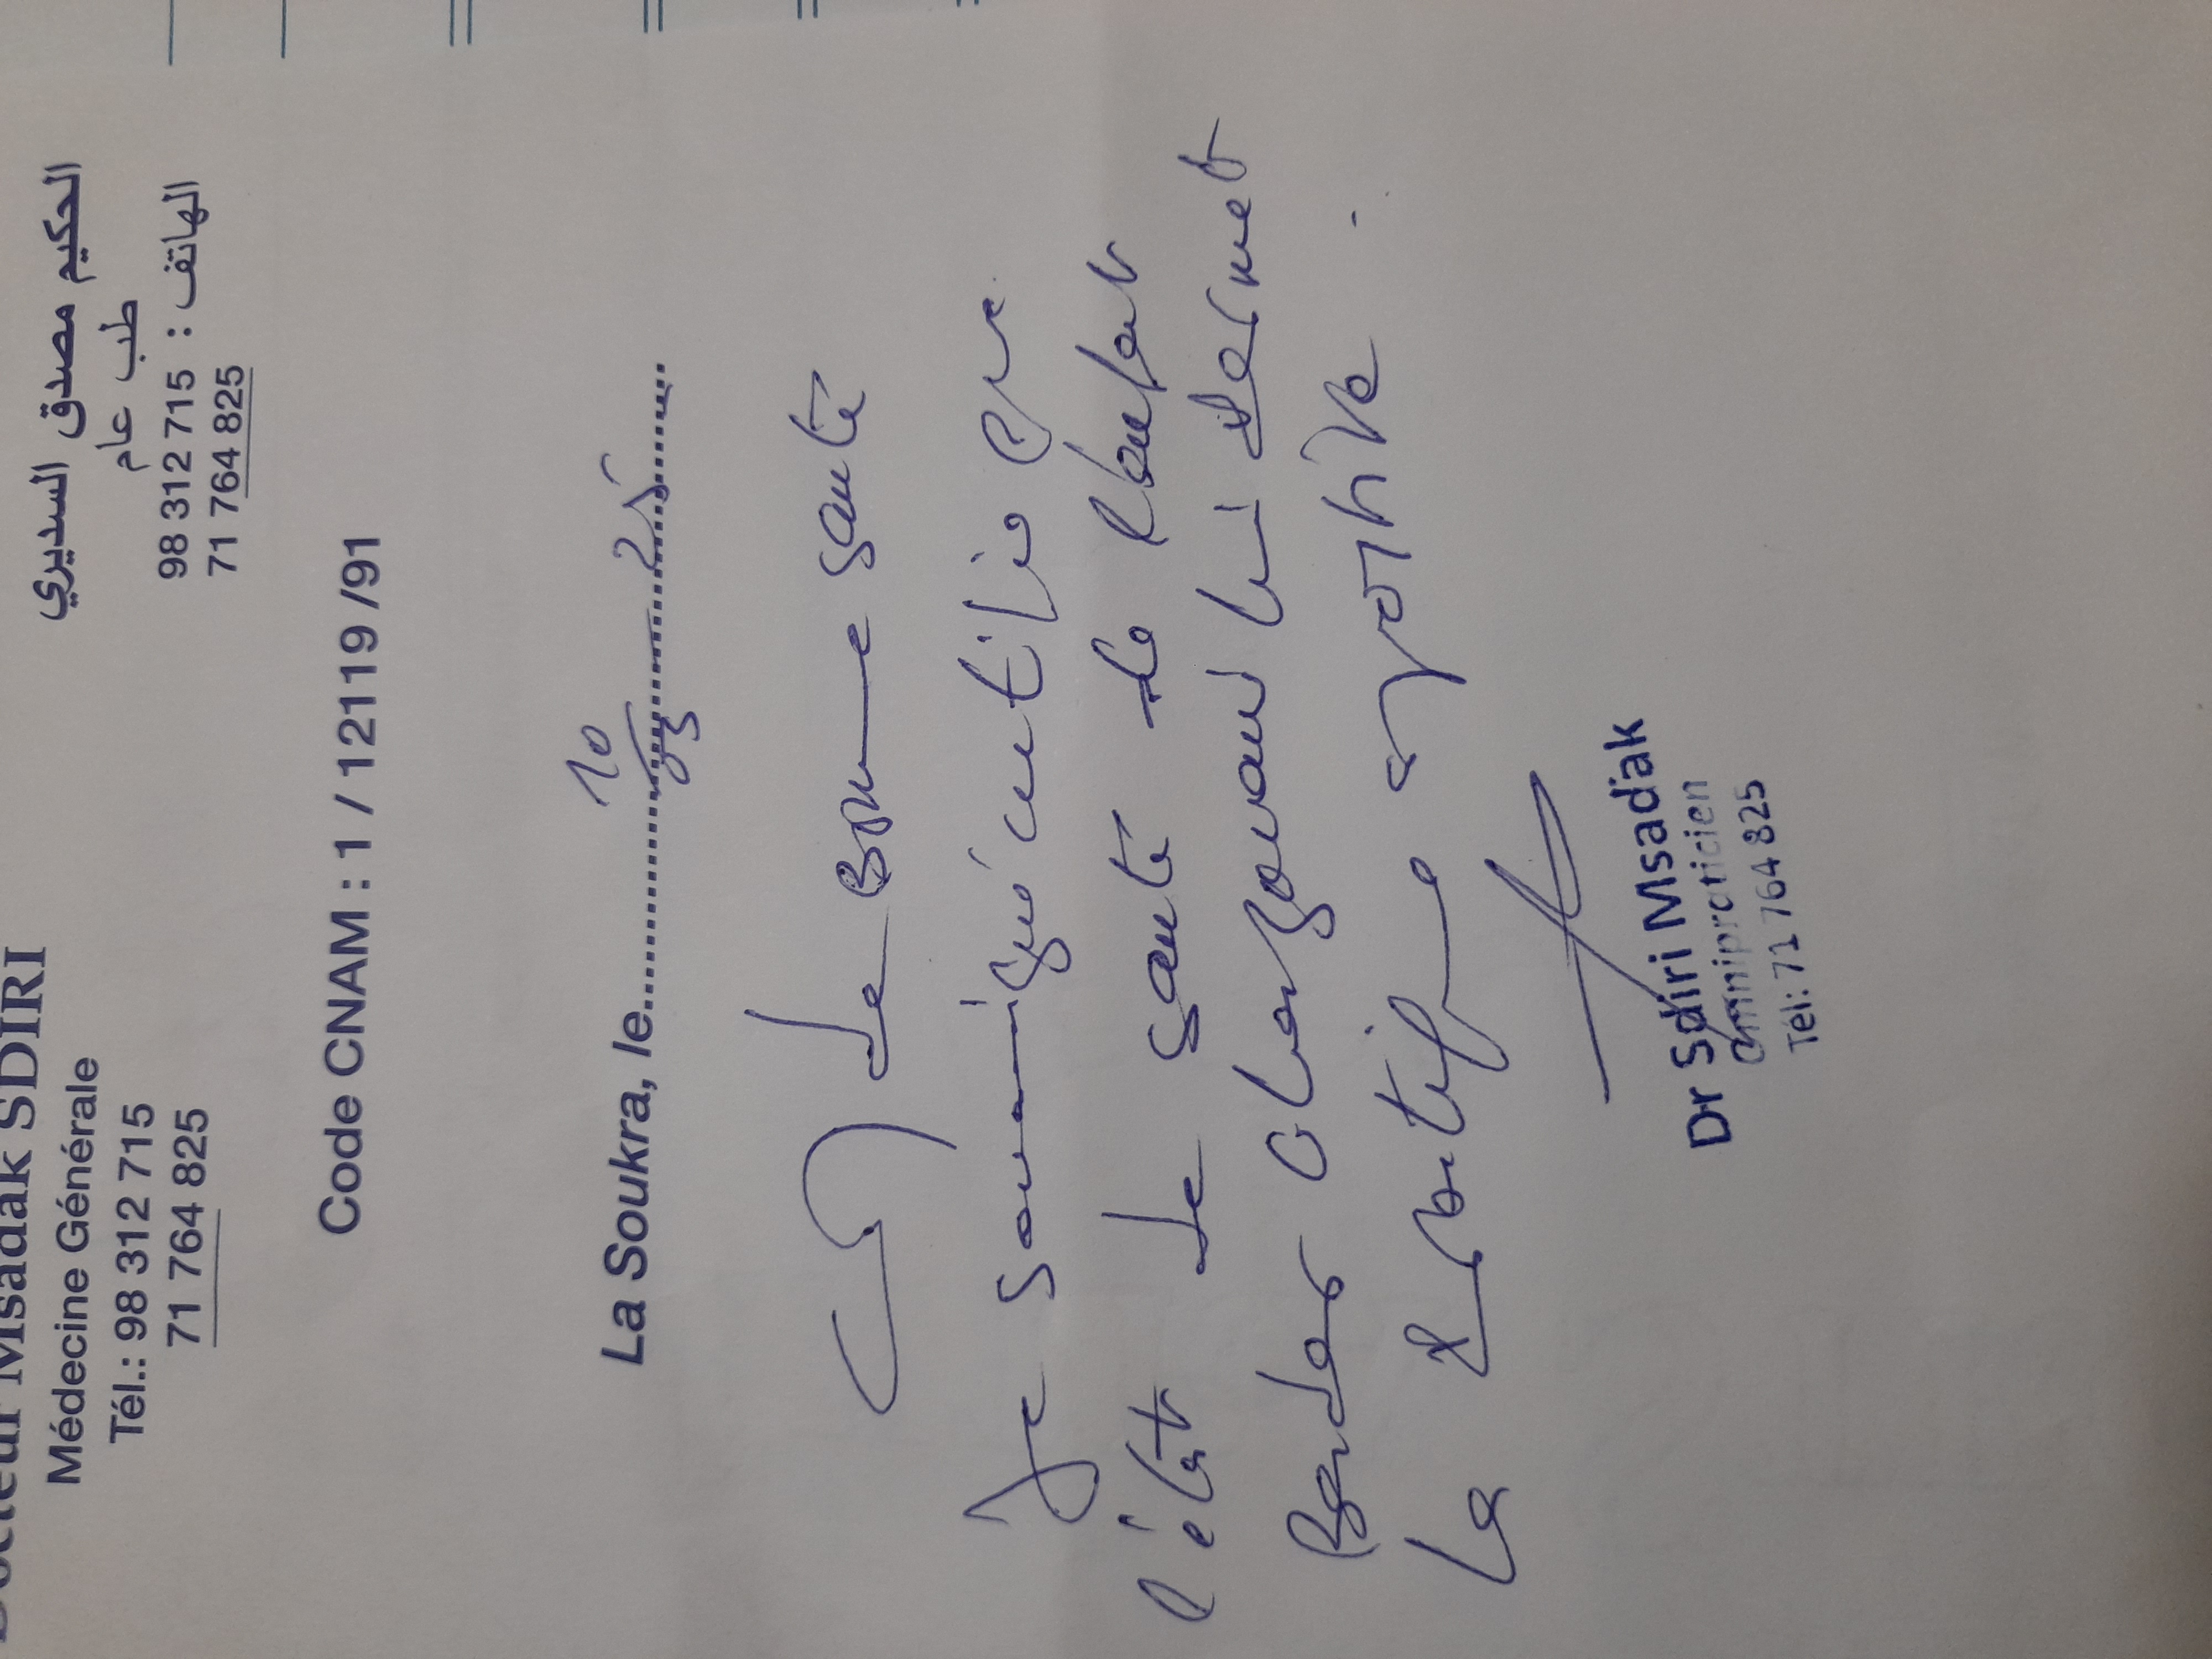 Docteur Msadak SDIRI
Médecine Générale
Tél.: 98 312 715
71 764 825
الحكيم مصدق السديري
طب عام
الهاتف : 98 312 715
71 764 825
Code CNAM : 1 / 12119 /91
La Soukra, le 10 25
de Bonne santé
Je soussigné certifie que
l'état de santé de l'enfant
lui permet
la pratique
Dr Sdiri Msadak
Omnipraticien
Tél: 71 764 825